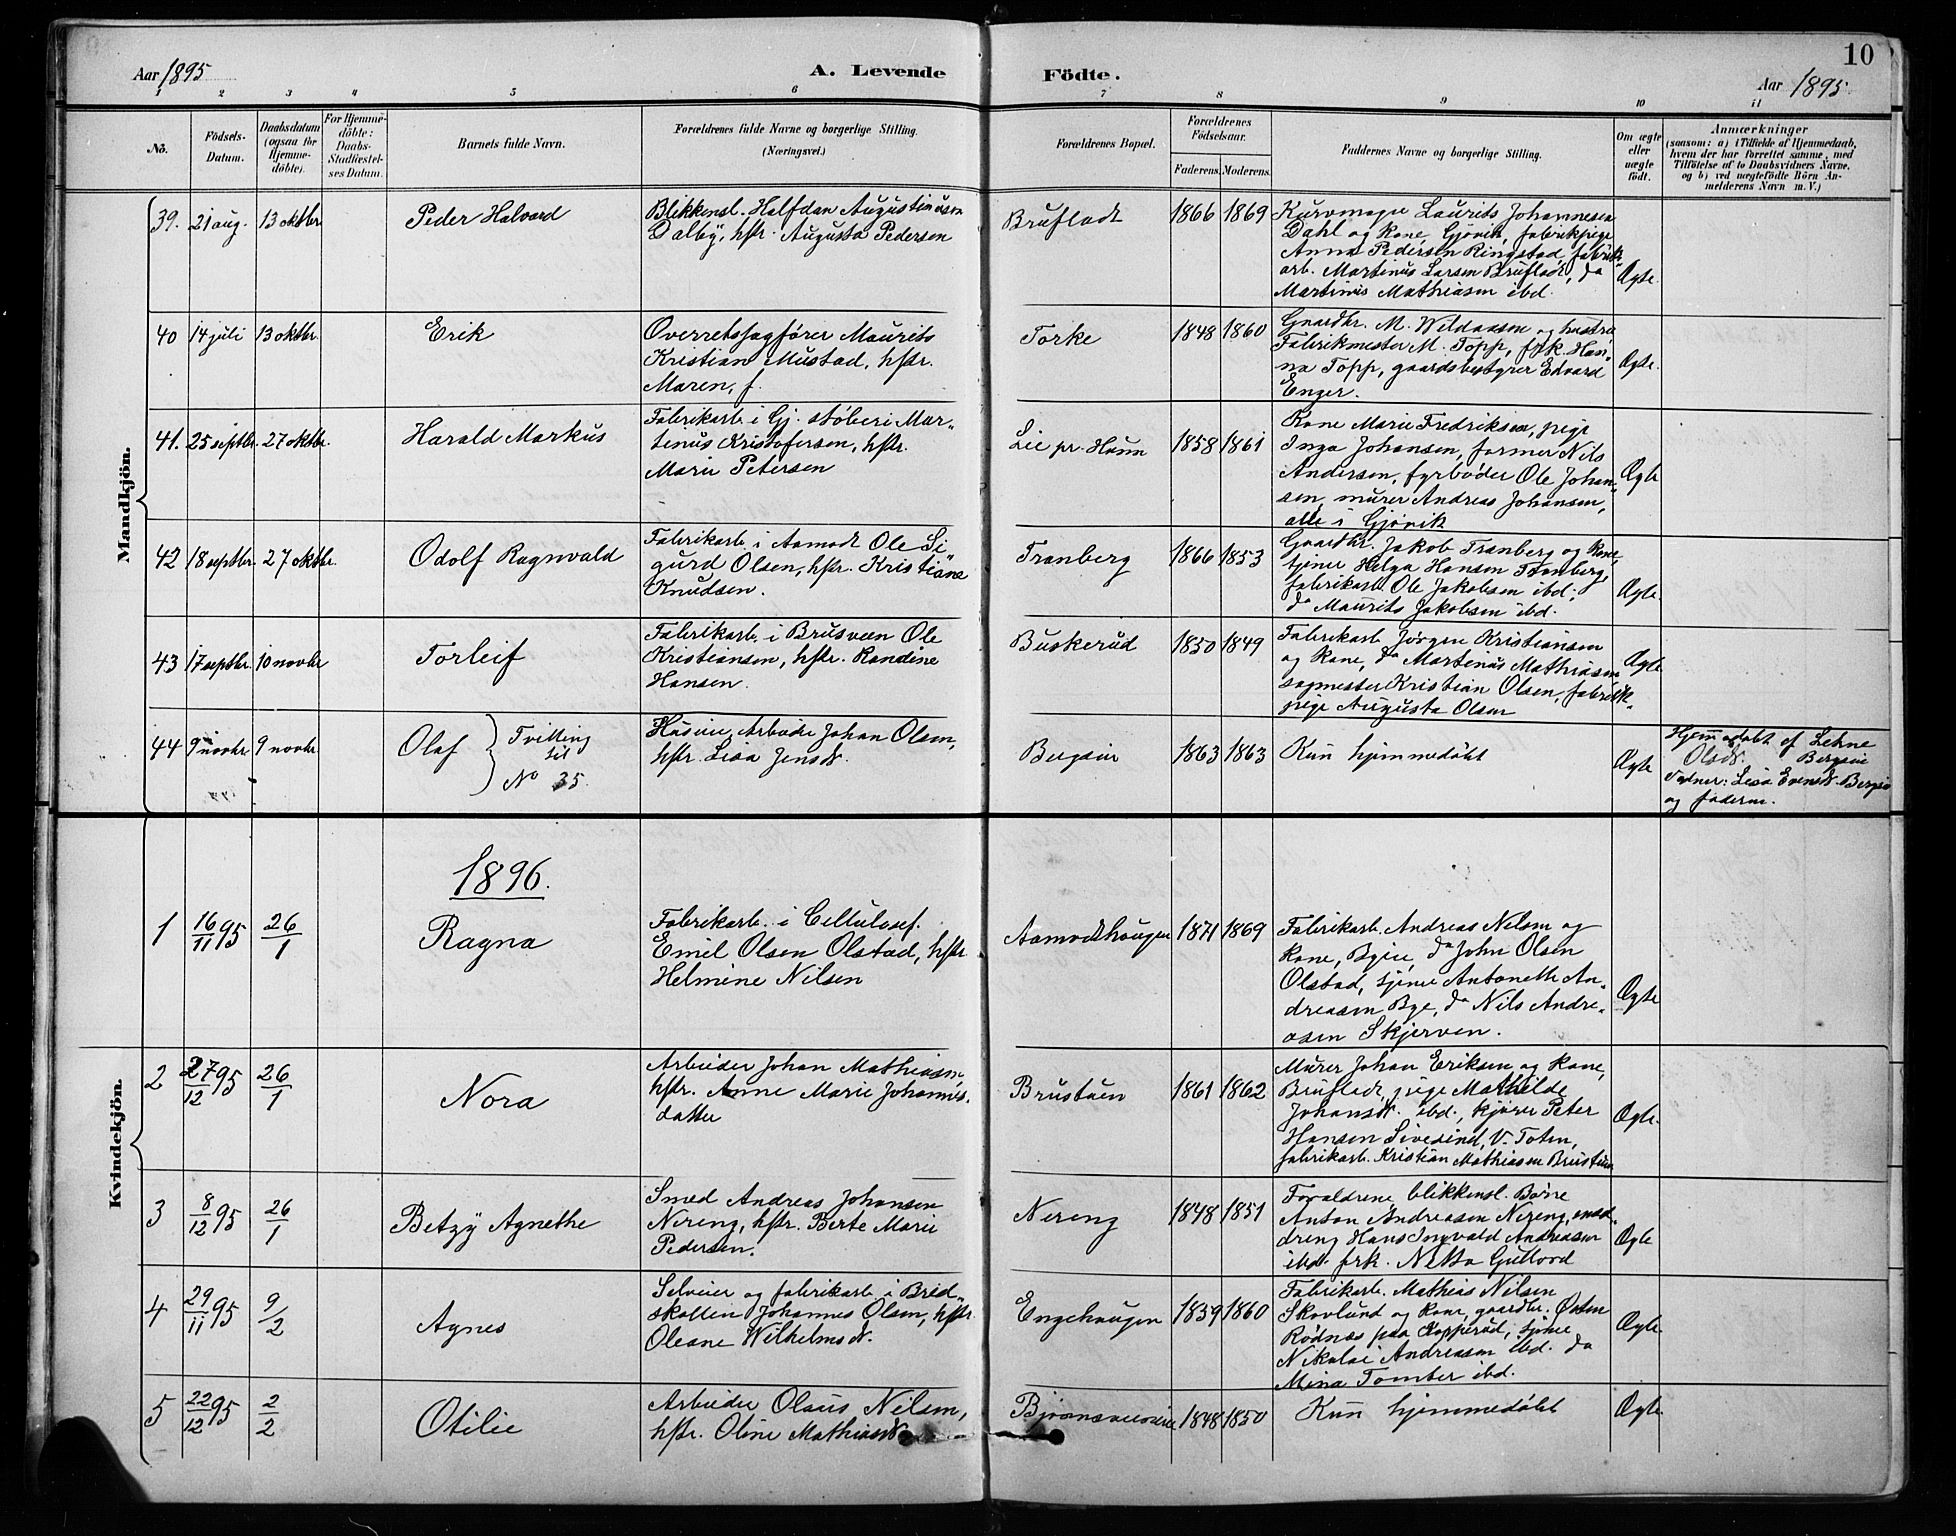 10
Aar 1895
A. Levende
Födte.
Aar 1895
1 2 3 4 5 6 7 8 9 10 11
No.
Födsels-
Datum.
Daabsdatum
(ogsaa for
Hjemme-
döbte).
For Hjemme-
döbte:
Daabs-
Stadfæstel-
ses Datum.
Barnets fulde Navn.
Forældrenes fulde Navne og borgerlige Stilling.
(Næringsvei.)
Forældrenes Bopæl.
Forældrenes
Födselsaar.
Faderens.
Moderens.
Faddernes Navne og borgerlige Stilling.
Om ægte
eller
uægte
født.
Anmærkninger
(saasom: a) i Tilfælde af Hjemmedaab,
hvem der har forrettet samme, med
Tilföielse af to Daabsvidners Navne,
og b) ved uægtefödte Börn An-
melderens Navn m. V.)
Mandkjön.
39. 21 aug. 13 oktbr
Peder Halvard
Blikkensl. Halfdan Augustinusen
Dalby, hstr. Augusta Pedersen
Brufladt
1866 1869
Kurvmager Laurits Johannesen
Dahl og kone, Gjövik, fabrikpige
Anna Pedersen Ringstad, fabrik-
arb. Martinus Larsen Brufladt, do
Martinus Mathiasen ibd.
Ægte.
40 14 juli 13 oktbr.
Erik
Overretssagförer Maurits
Kristian Mustad, hstr.
Maren, f.
Torke
1848 1860
Gaardbr. M. Weldaasen og hustru
Fabrikmester M. Topp, frk. Han-
na Topp, gaardsbestyrer Edvard
Enger.
Ægte.
41. 25 septbr. 27 oktbr.
Harald Markus
Fabrikarb. i Gj. stöberi Mar-
tinus Kristofersen, hstr.
Marie Petersen
Lie pr. Hunn
1858 1861
Kone Marie Fredriksen, pige
Inga Johansen, former Nils
Andersen, fyrböder Ole Johan-
sen, murer Andreas Johansen,
alle i Gjövik
Ægte
42 18 septbr. 27 oktbr.
Odolf Ragnvald
Fabrikarb. i Aamodt Ole Si-
gurd Olsen, hstr. Kristiane
Knudsen.
Tranberg
1866 1853
Gaardbr. Jakob Tranberg og kone,
tjener Helga Hansen Tranberg,
fabrikarb. Ole Jakobsen ibd.,
do Maurits Jakobsen ibd.
Ægte.
43 17 septbr. 10 novbr
Torleif
Fabrikarb. i Brusveen Ole
Kristiansen, hstr. Randine
Hansen.
Buskerud
1850 1849
Fabrikarb. Jörgen Kristiansen
og kone, do Martinus Mathiasen
sagmester Kristian Olsen, fabrik-
pige Augusta Olsen
Ægte
44 9 novbr 9 novbr.
Olaf } Tvilling
til
No 35.
Arbeider Johan Olsen,
hstr. Lisa Jensd.
1863 1863
Kun hjemmedöbt
Ægte
Hjemmedöbt af Lehne
Olsd.
Vidner: Lisa Evensd.
og faderen.
1896.
Kvindekjön.
1 16/11 95 26/1
Ragna
Fabrikarb. i Cellulosef.
Emil Olsen Olstad, hstr.
Helmine Nilsen
Aamodthaugen
1871 1869
Fabrikarb. Andreas Nilsen og
kone, do John Olsen
Olstad, tjener Antonette An-
dreasen Bye, do Nils Andre-
asen Skjerven.
Ægte
2 27/12 95 26/1
Nora
Arbeider Johan Mathiasen,
hstr. Anne Marie Johannes-
datter
Brustuen
1861 1862
Murer Johan Eriksen og kone,
Brufladt, pige Mathilde
Johansd. ibd., kjörer Peter
Hansen Sivesind, V. Toten,
fabrikarb. Kristian Mathiasen Brustuen
Ægte.
3 8/12 95 26/1
Betzy Agnethe
Smed Andreas Johansen
Nereng, hstr. Berte Marie
Pedersen.
Nereng
1848 1851
Forældrene, blikkensl. Börre
Anton Andreasen Nereng,
dreng Hans Ingvald Andreasen
ibd. frk. Netta Gullord
Ægte
4 29/11 95 9/2
Agnes
Selveier og fabrikarb. i Bred-
skallen Johannes Olsen, hstr.
Oleane Wilhelmsd.
Engehaugen
1859 1860
Fabrikarb. Mathias Nilsen
Skovlund og kone, gaardbr. Östen
Rödnæs paa Kopperud, tjener
Nikolai Andreasen ibd. do
Mina Tomter ibd.
Ægte.
5 22/12 95 2/2
Otilie
Arbeider Olaus Nilsen,
hstr. Oline Mathiasd.
1848 1850
Kun hjemmedöbt
Ægte.